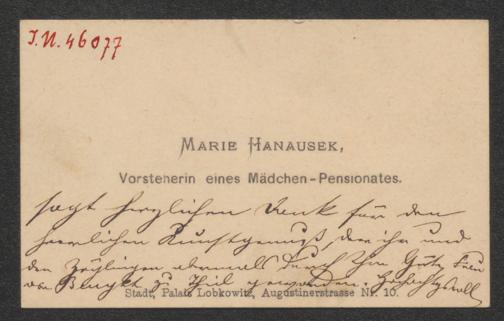 J.N. 46077
MARIE HANAUSEK,
Vorsteherin eines Mädchen-Pensionates.
sagt herzlichen Dank für den
herrlichen Kunstgenuß, der ihr und
den Zöglingen abermals durch Ihre Güte,
zu Theil geworden. Hochachtungsvoll
Stadt, Palais Lobkowitz, Augustinerstrasse Nr. 10.